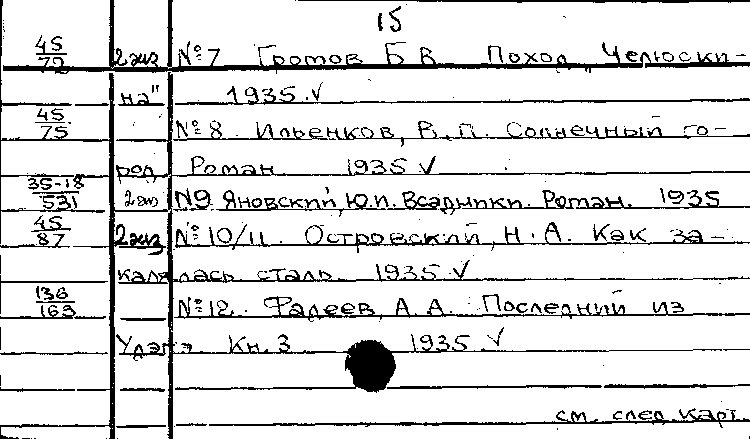 15
45/72 2 экз №7 Громов Б В Поход "Челюски-
на" 1935.V
45/75 №8 Ильенков, В.П. Солнечный го-
род Роман 1935 V
35-18/531 2 экз №9 Яновский, Ю.И. Всадники. Роман. 1935
45/87 2 экз №10/11. Островский, Н.А. Как за-
калялась сталь 1935.V
136/163 №12. Фадеев, А А. Последний из
Удэгэ Кн. 3 1935.V
см. след. карт.